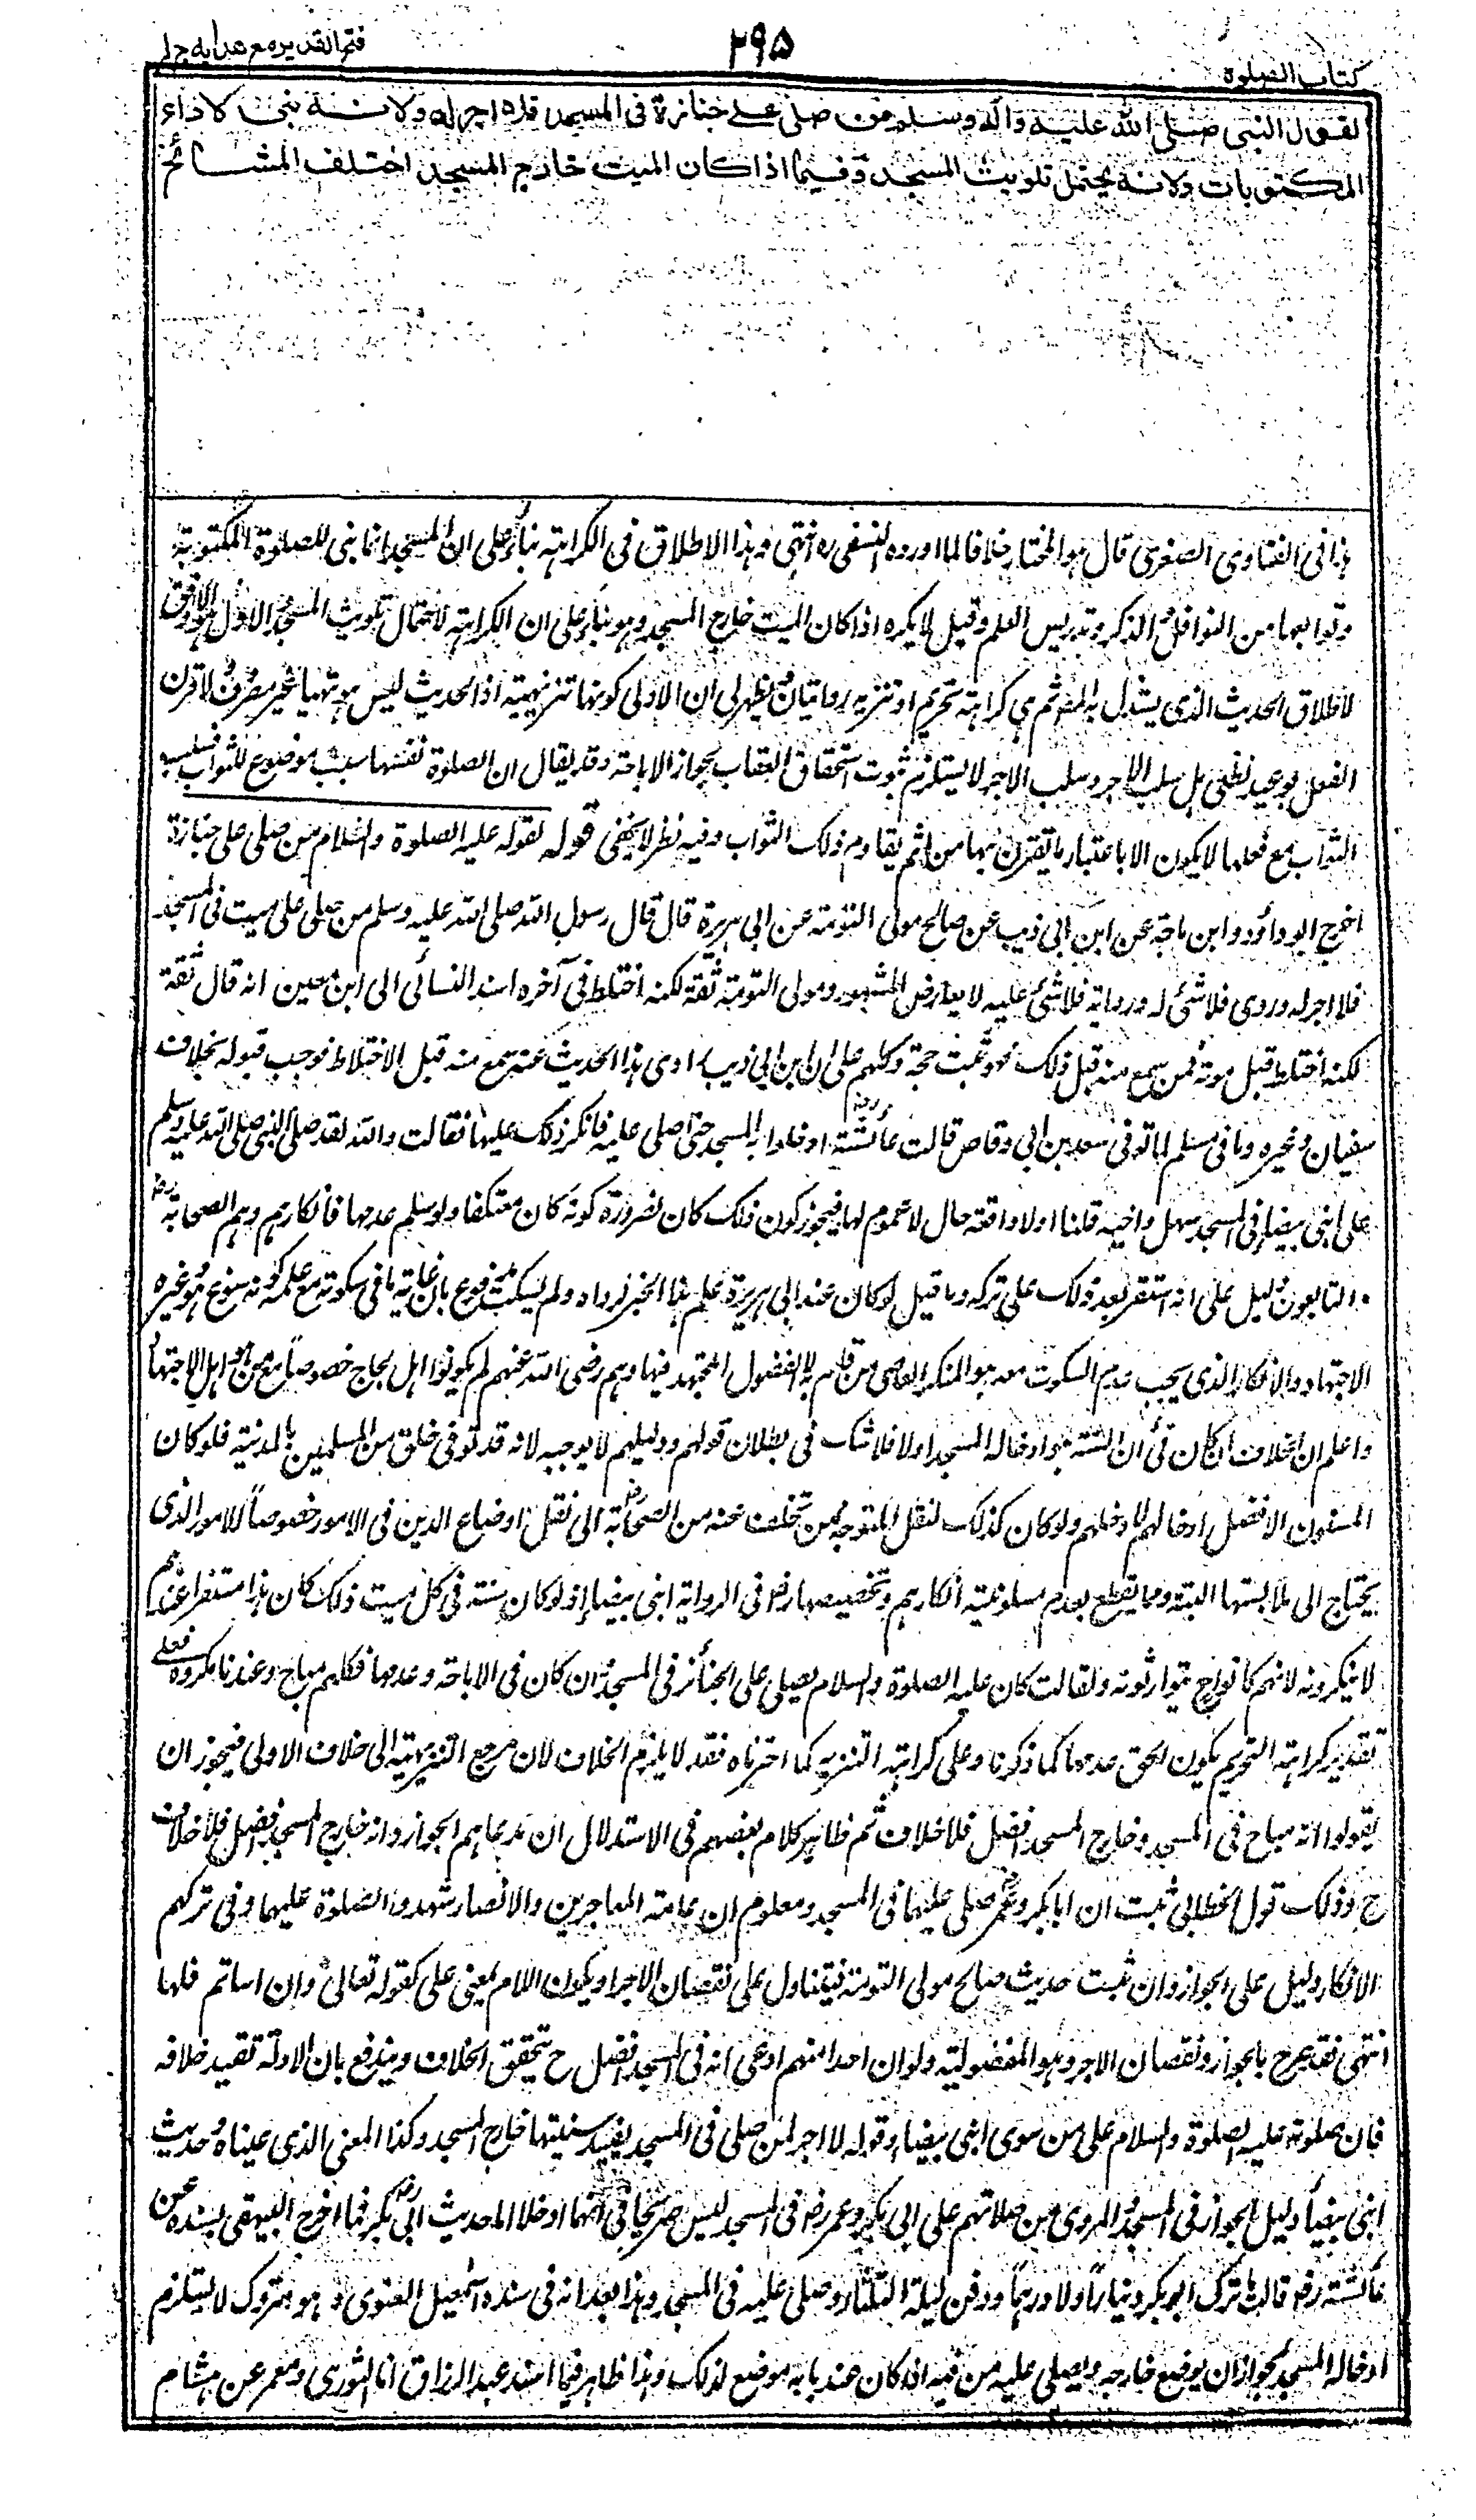 كتاب الصلوة
٢٩٥
فتح القدير مع هدايه ج ا
لقول النبى صلى الله عليه وآله وسلم من صلى على جنازة فى المسجد فلا اجر له ولانه بنى لاداء
المكتوبات ولانه يحتمل تلويث المسجد وفيما اذا كان الميت خارج المسجد اختلف المشائخ
هذا فى الفتاوى الصغرى قال هو المختار خلافا لما اورده النسفى ره انتهى وهذا الاطلاق فى الكراهة بناء على ان المسجد انما بنى للصلوة المكتوبة
وتوابعها من النوافل والذكر وتدريس العلم وقيل لا يكره اذا كان الميت خارج المسجد وهو بناء على ان الكراهة لاحتمال تلويث المسجد والاول هو الاوفق
لاطلاق الحديث الذى يستدل به المص ثم هى كراهة تحريم او تنزيه روايتان ويظهر لى ان الاولى كونها تنزيهية اذ الحديث ليس هو نهيا غير مصروف ولا قرن
الفعل بوعيد بظنى بل سلب الاجر وسلب الاجر لا يستلزم ثبوت استحقاق العقاب لجواز الاباحة وقد يقال ان الصلوة نفسها سبب موضوع للثواب فسلب
الثواب مع فعلها لا يكون الا باعتبار ما يقترن بها من اثم يقاوم ذلك الثواب وفيه نظر لا يخفى قوله لقوله عليه الصلوة والسلام من صلى على جنازة
اخرج ابو داؤد وابن ماجة عن ابن ابى ذيب عن صالح مولى التوئمة عن ابى هريرة قال قال رسول الله صلى الله عليه وسلم من صلى على ميت فى المسجد
فلا اجر له وروى فلا شئ له ورواية فلا شئ عليه لا يعارض المشهور ومولى التوئمة ثقة لكنه اختلط فى آخره اسند النسائى الى ابن معين انه قال ثقة
لكنه اختلط قبل موته فمن سمع منه قبل ذلك فهو ثبت حجة وكلهم على ان ابن ابى ذيب راوى هذا الحديث عنه سمع منه قبل الاختلاط فوجب قبوله بخلاف
سفيان وغيره وما فى مسلم لما توفى سعد بن ابى وقاص قالت عائشة رض ادخلوا به المسجد حتى اصلى عليه فانكر ذلك عليها فقالت والله لقد صلى النبى صلى الله عليه وسلم
على ابنى بيضاء فى المسجد سهل واخيه قلنا اولا واقعة حال لا عموم لها فيجوز كون ذلك كان لضرورة كونه كان معتكفا ولو سلم عدمها فانكارهم وهم الصحابة رض
والتابعون دليل على انه استقر بعد ذلك على تركه وما قيل لو كان عند ابى هريرة علم بهذا الخبر لرواه ولم يسكت مدفوع بان غاية ما فى سكوته مع علمه كونه سوغ هو وغيره
الاجتهاد والانكار الذى يجب عدم السكوت معه هو المنكر العاصى من قام به لا الفضول المجتهد فيها وهم رضى الله عنهم لم يكونوا اهل لجاج خصوصا مع من هو اهل الاجتهاد
واعلم ان الخلاف ان كان فى ان السنة هو ادخاله المسجد او لا فلا شك فى بطلان قولهم ودليلهم لا يوجبه لانه قد توفى خلق من المسلمين بالمدينة فلو كان
المسنون الافضل ادخالهم لادخلهم ولو كان كذلك لنقل كتوجه من تخلف عنه من الصحابة رض الى نقل اوضاع الدين فى الامور خصوصا للامور الذى
يحتاج الى ملابستها البتة ومما يقطع بعدم مسنونيته انكارهم وتخصيصها رض فى الرواية ابنى بيضاء اذ لو كان سنة فى كل ميت ذلك كان هذا مستقرا عندهم
لا ينكرونه لانهم كانوا ح يتوارثونه ولقالت كان عليه الصلوة والسلام يصلى على الجنائز فى المسجد وان كان فى الاباحة وعدمها فكلهم مباح وعندنا مكروه فعلى
تقدير كراهة التحريم يكون الحق عدمها كما ذكرنا وعلى كراهة التنزيه كما اخترناه فقد لا يلزم الخلاف لان مرجع التنزيهية الى خلاف الاولى فيجوز ان
يقولوا انه مباح فى المسجد وخارج المسجد افضل فلا خلاف ثم ظاهر كلام بعضهم فى الاستدلال ان مدعاهم الجواز وانه خارج المسجد افضل فلا خلاف
ح وذلك قول الخطابى ثبت ان ابا بكر وعمر رض صلى عليهما فى المسجد ومعلوم ان عامة المهاجرين والانصار شهدوا الصلوة عليهما وفى تركهم
الانكار دليل على الجواز وان ثبت حديث صالح مولى التوئمة فيتناول على نقصان الاجر او يكون اللام بمعنى على كقوله تعالى وان اساتم فلها
انتهى فقد صرح بالجواز ونقصان الاجر وهو المفضولية ولو ان احدا منهم ادعى انه فى المسجد افضل ح يتحقق الخلاف ويندفع بان الادلة تفيد خلافه
فان صلوته عليه الصلوة والسلام على من سوى ابنى بيضاء وقوله لا اجر لمن صلى فى المسجد يفيد سنيتها خارج المسجد وكذا المعنى الذى عيناه وحديث
ابنى بيضاء دليل الجواز فى المسجد والمروى من صلاتهم على ابى بكر وعمر رض فى المسجد ليس صريحا فى انهما ادخلا اما حديث ابى بكر رض فما اخرج البيهقى بسنده عن
عائشة رض قالت ما ترك ابو بكر دينارا ولا درهما ودفن ليلة الثلثاء وصلى عليه فى المسجد وهذا بعد انه فى سنده اسمعيل الغنوى وهو متروك لا يستلزم
ادخاله المسجد لجواز ان يوضع خارجه ويصلى عليه من فيه اذا كان عند بابه موضع لذلك وهذا ظاهر فيما اسند عبد الرزاق انا الثورى ومعمر عن هشام